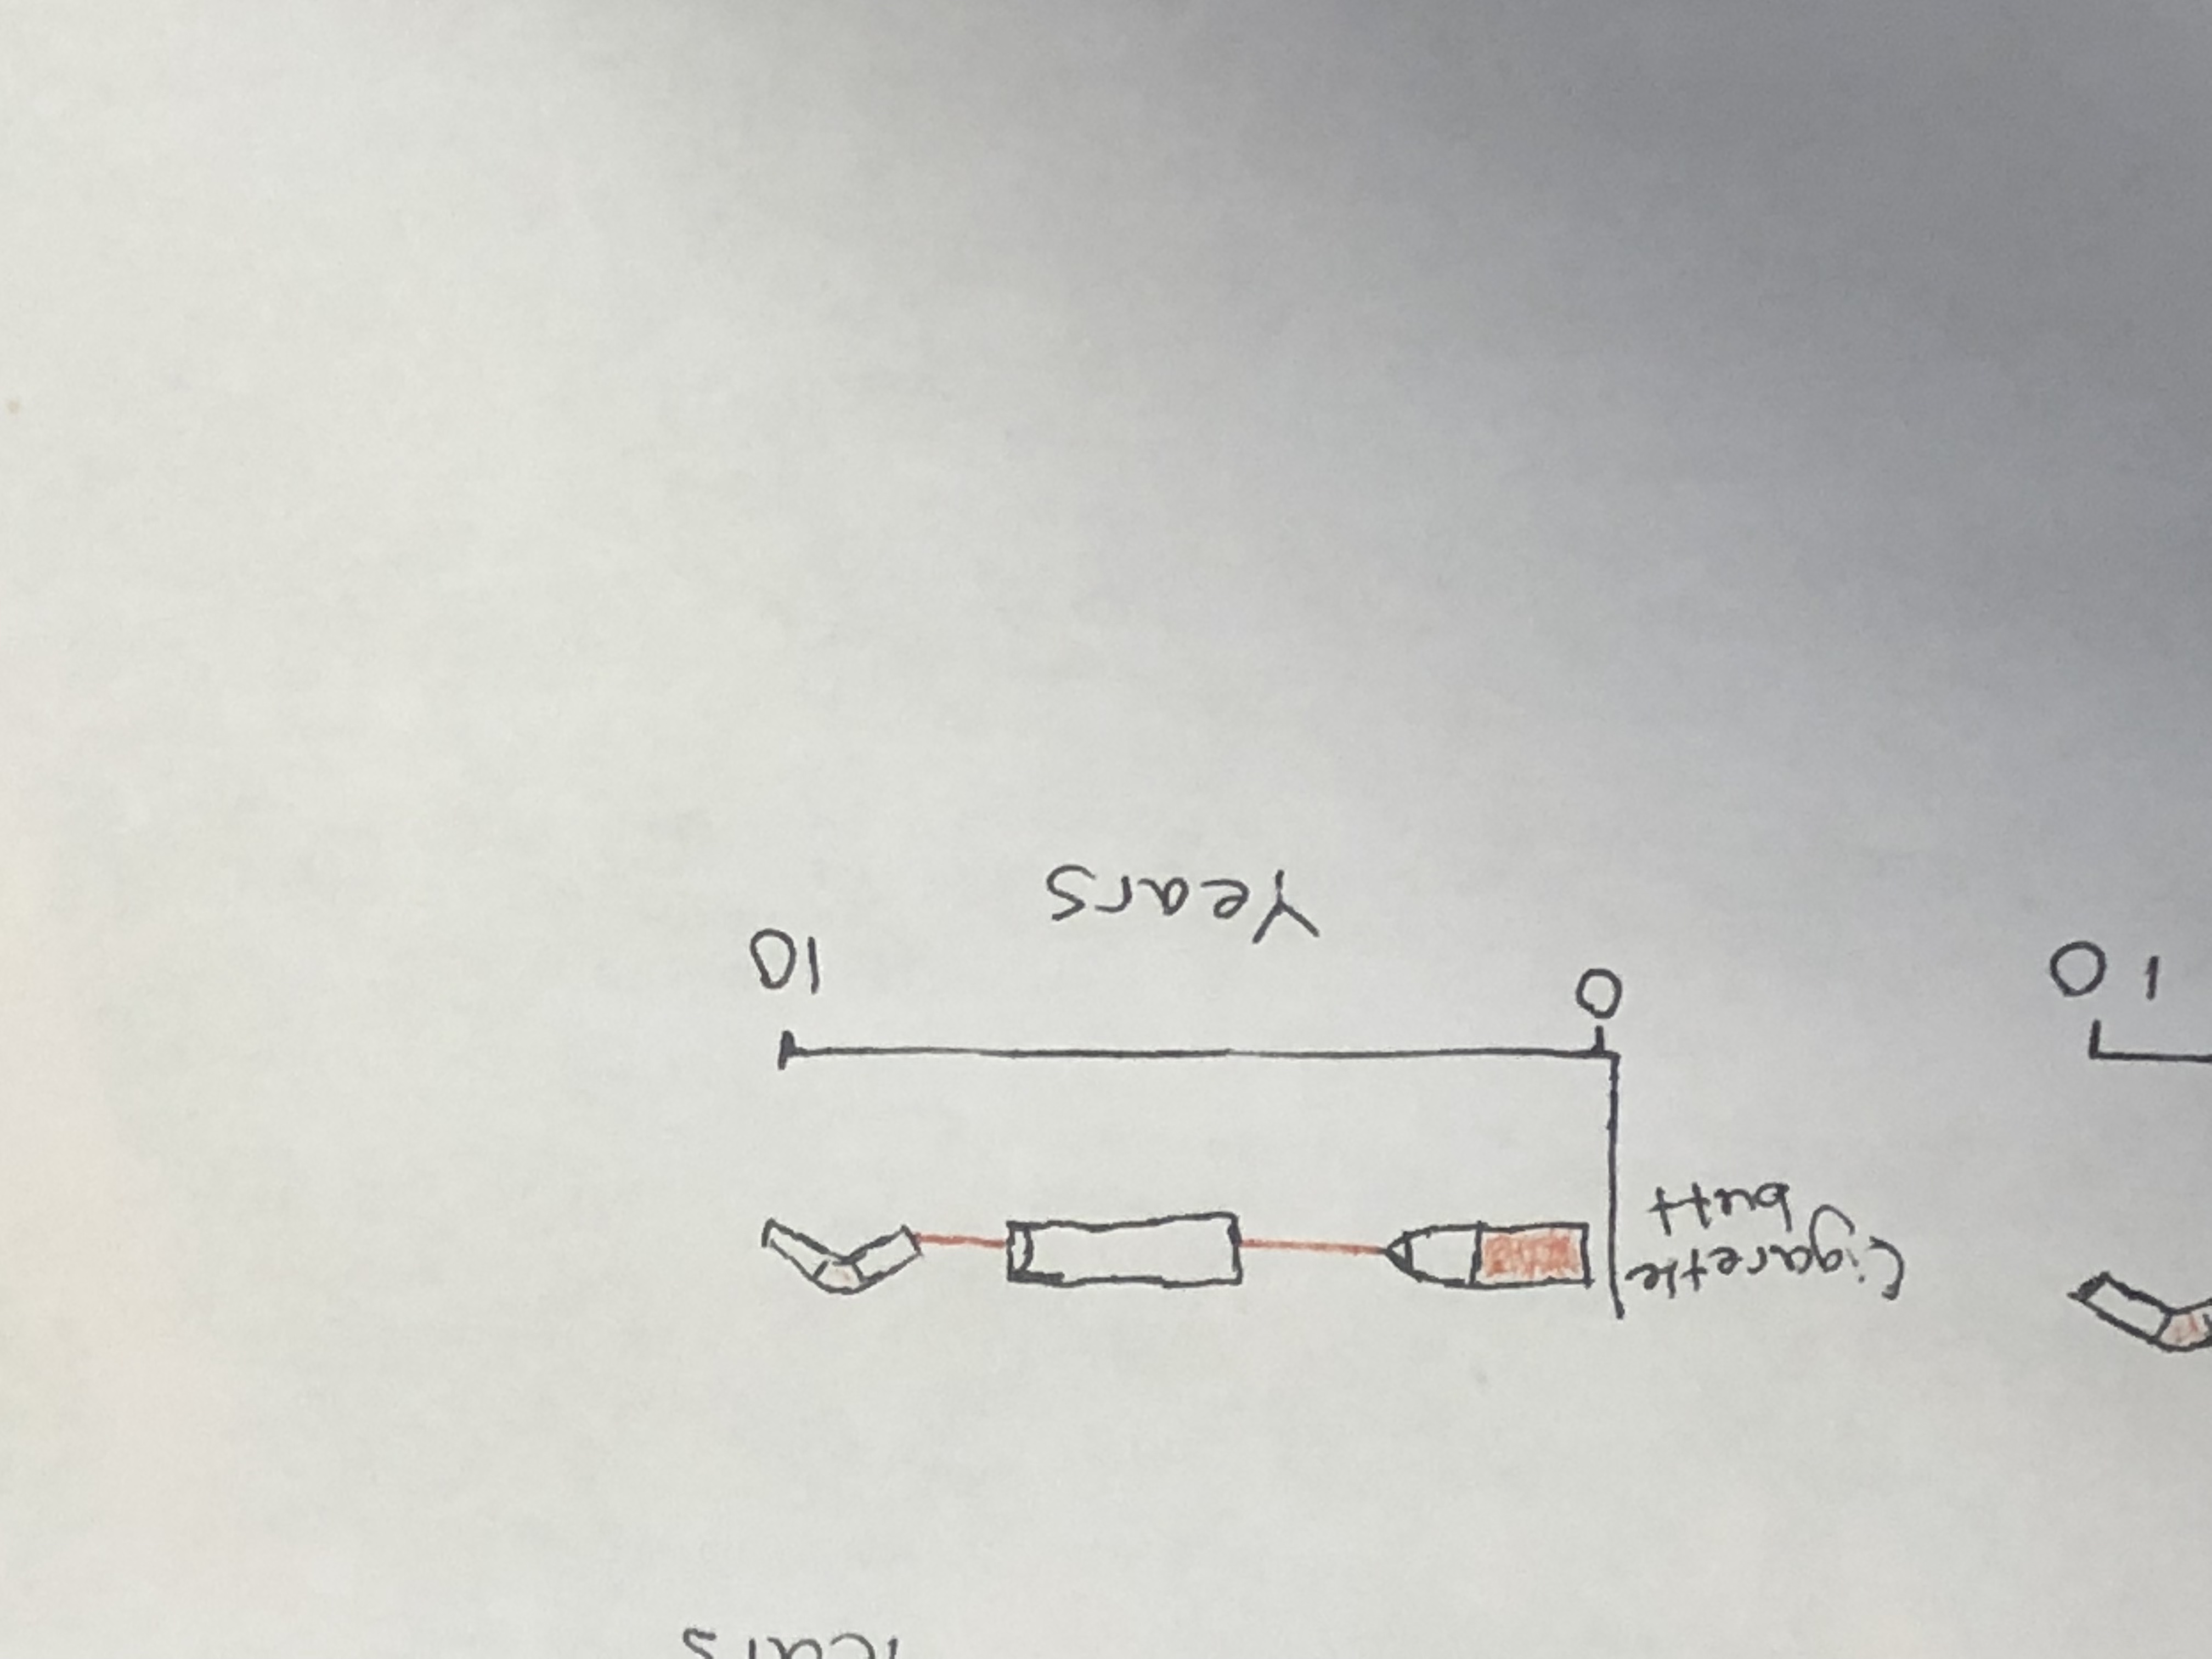 Years
Cigarette
butt
10
0
10
Years